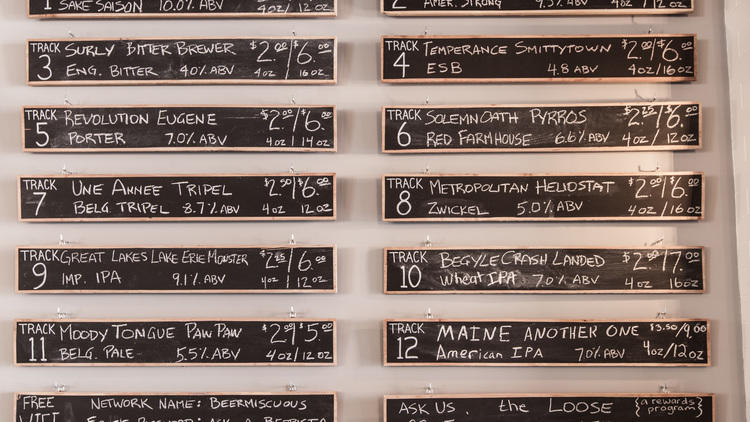 1 SAKE SAISON 10.0% ABV 4oz/12oz
2 AMER. STRONG 9.5% ABV
TRACK 3 SURLY BITTER BREWER $2.00/$6.00
ENG. BITTER 4.0% ABV 4oz 16oz
TRACK 4 TEMPERANCE SMITTYTOWN $2.00/$6.00
ESB 4.8 ABV 4oz/16oz
TRACK 5 REVOLUTION EUGENE $2.00/$6.00
PORTER 7.0% ABV 4oz 14oz
TRACK 6 SOLEMN OATH PYRROS $2.25/$6.00
RED FARMHOUSE 6.6% ABV 4oz/12oz
TRACK 7 UNE ANNEE TRIPEL $2.50/$6.00
BELG. TRIPEL 8.7% ABV 4oz 12oz
TRACK 8 METROPOLITAN HELIOSTAT $2.00/$6.00
ZWICKEL 5.0% ABV 4oz/16oz
TRACK 9 GREAT LAKES LAKE ERIE MONSTER $2.25/$6.00
IMP. IPA 9.1% ABV 4oz 12oz
TRACK 10 BEGYLE CRASH LANDED $2.00/7.00
Wheat IPA 7.0% ABV 4oz 16oz
TRACK 11 MOODY TONGUE PAW PAW $2.00/$5.00
BELG. PALE 5.5% ABV 4oz/12oz
TRACK 12 MAINE ANOTHER ONE $3.50/9.00
American IPA 7.0% ABV 4oz/12oz
FREE NETWORK NAME: BEERMISCUOUS
ASK US. the LOOSE {a rewards program}